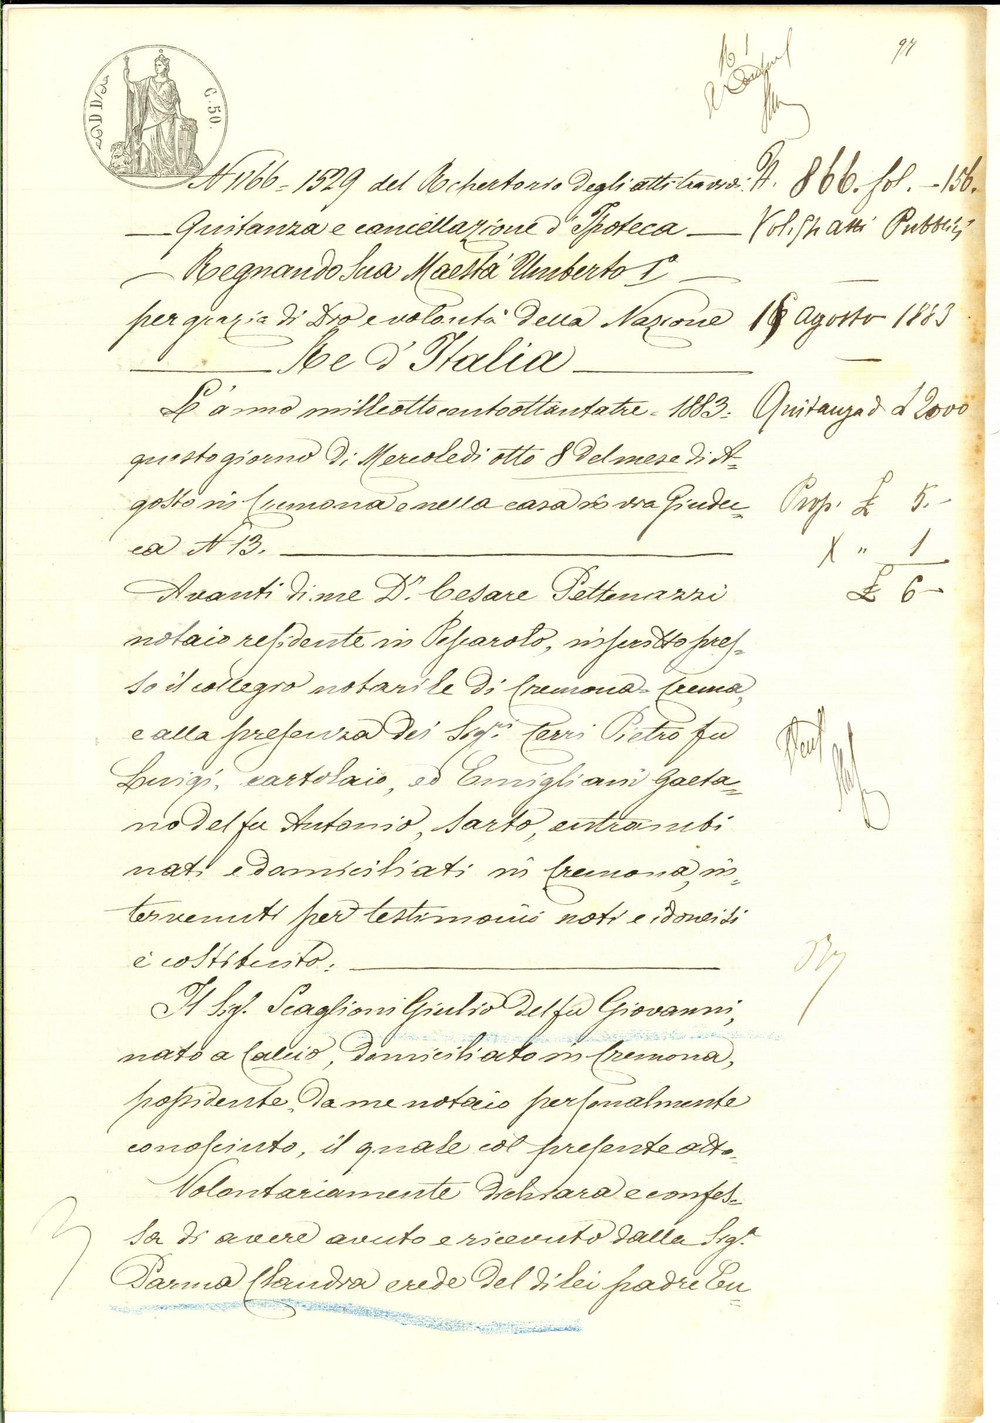 97
C. 50.
N 1166 = 1529 del Repertorio degli atti tra vivi.
Quitanza e cancellazione d'Ipoteca
Regnando Sua Maestà Umberto I°
per grazia di Dio e volontà della Nazione
Re d'Italia
L'anno milleottocentoottantatre = 1883 =
questo giorno di Mercoledì otto 8 del mese di A=
gosto in Cremona e nella casa in via Giudec=
ca N 13.
Avanti di me Dr. Cesare Pettenazzi
notaio residente in Pescarolo, inscritto pres=
so il collegio notarile di Cremona e Crema,
e alla presenza dei Sigri Cerri Pietro fu
Luigi, cartolaio, ed Emigliani Gaeta=
no del fu Antonio, sarto, entrambi
nati e domiciliati in Cremona, in=
tervenuti per testimonii noti e idonei si
è costituito:
Il Sigr. Scaglioni Giulio del fu Giovanni,
nato a Calcio, domiciliato in Cremona,
possidente, da me notaio personalmente
conosciuto, il quale col presente atto
Volontariamente dichiara e confes=
sa di avere avuto e ricevuto dalla Sigr.a
Parma Claudia erede del di lei padre Eu=
N. 866. fol. - 156.
Vol. 94 atti Pubblici
16 Agosto 1883
Quitanza di £ 2000
Prop. £ 5.-
X " 1
£ 6-